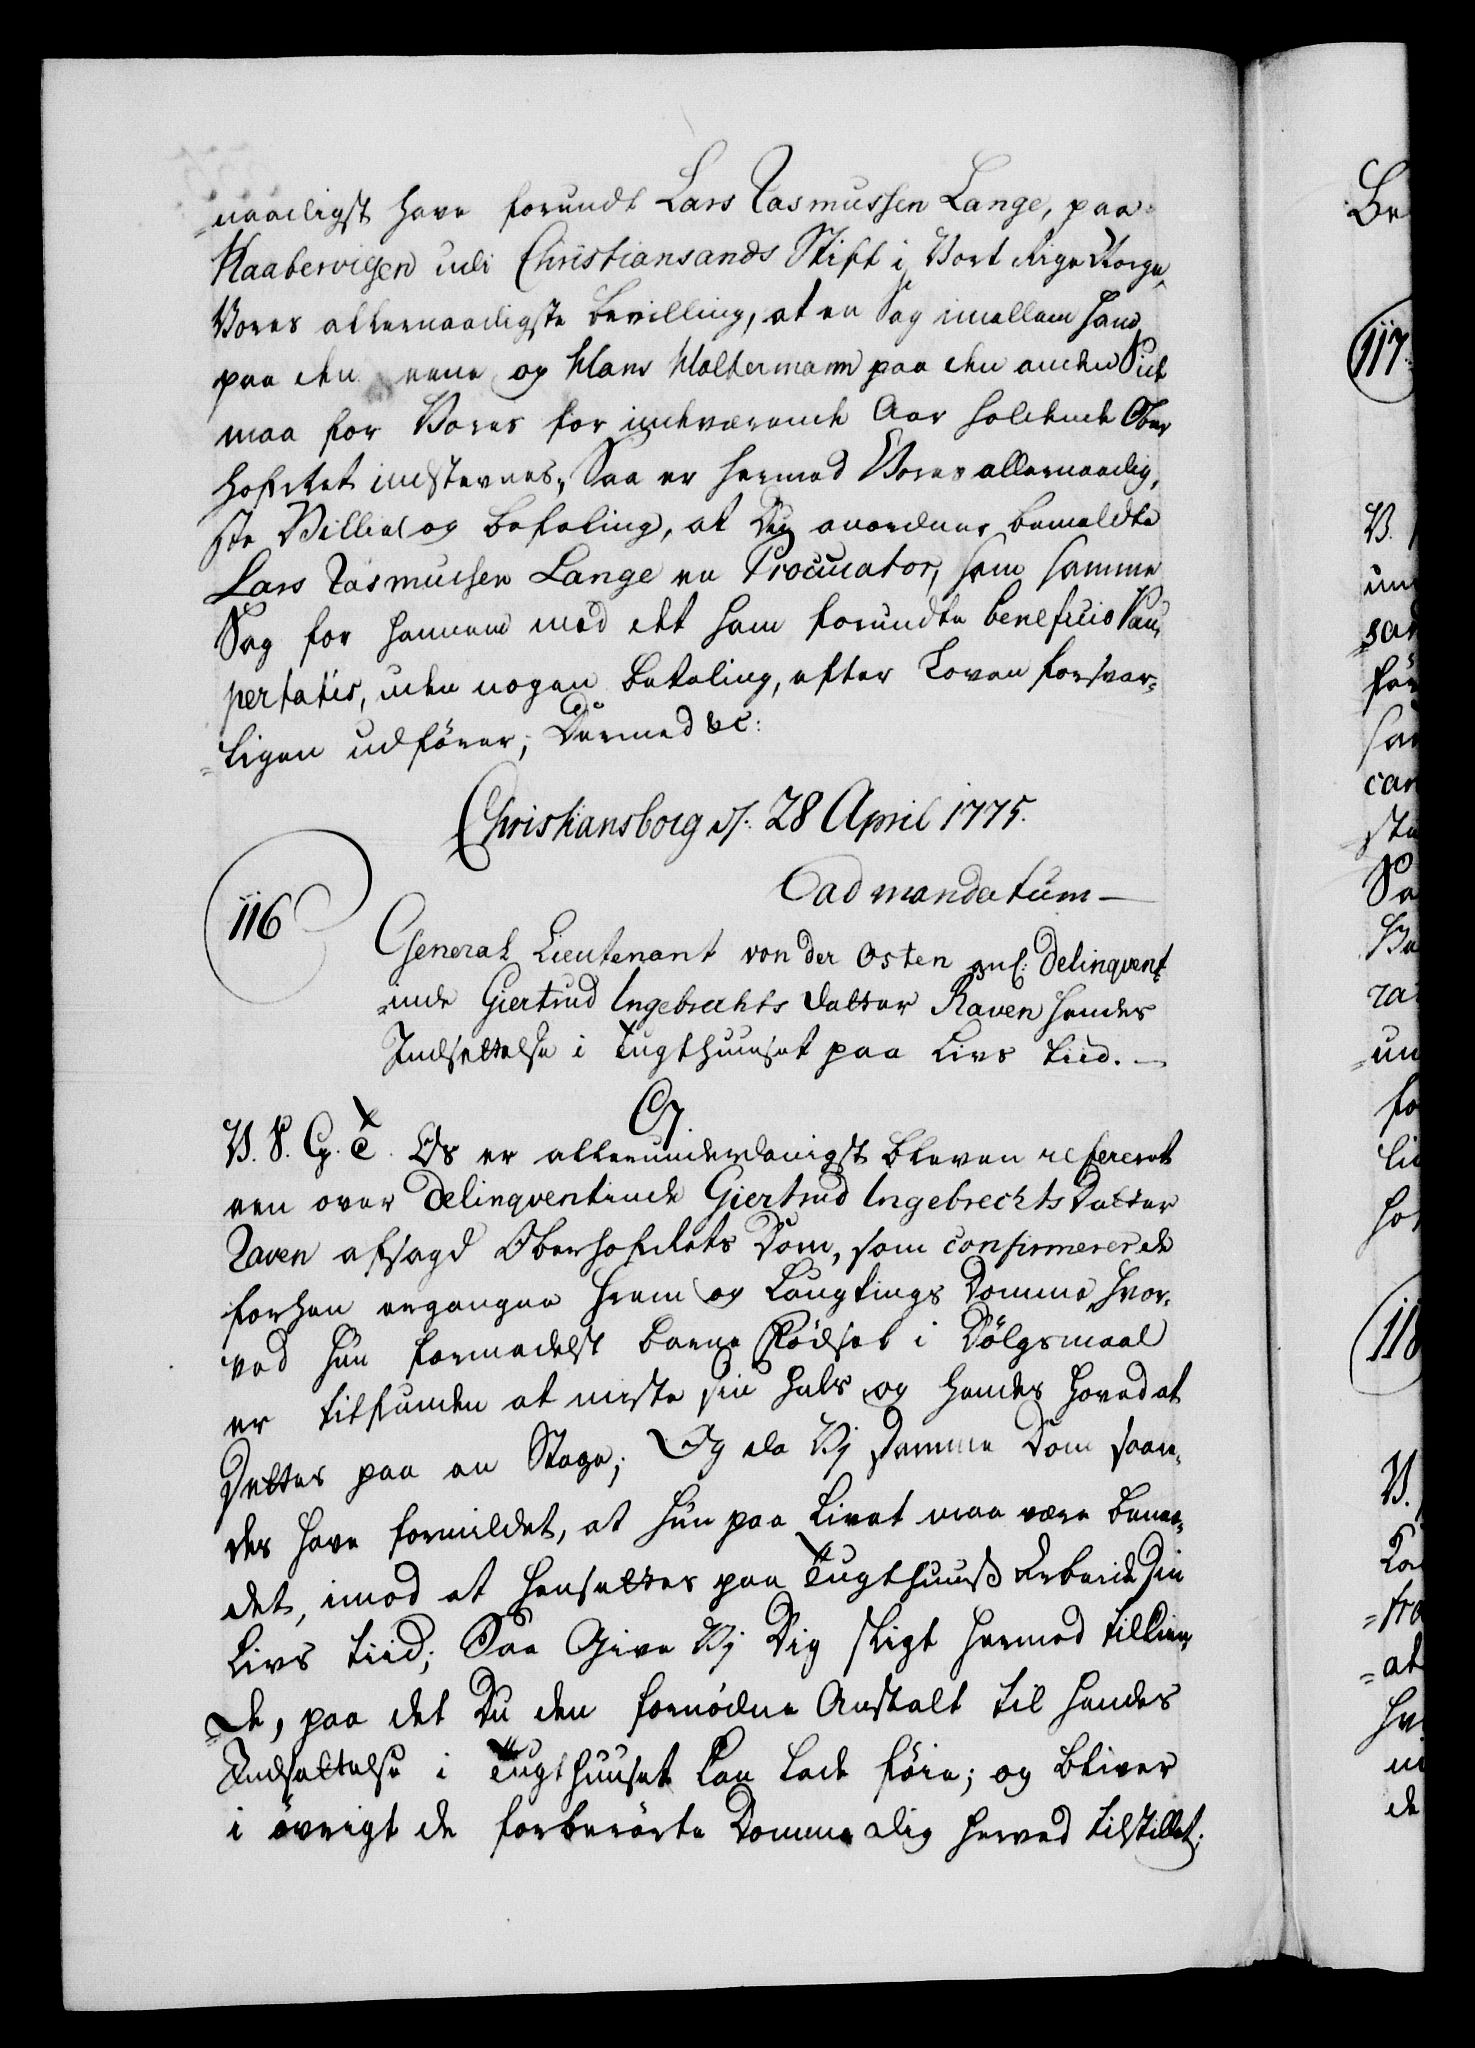 naadigst have forundt Lars Rasmussen Lange, paa
Kaabervigen udi Christiansands Stift i Vort Rige Norge,
Vores allernaadigste Bevilling, at en Sag imellem ham
paa den eene og Hans Woltermann paa den anden Side
maa for Vores for indeværende Aar holdende Ober
hofRet indstevnes, Saa er hermed Vores allernaadig,
ste Villie og Befaling, at Du anordner bemeldte
Lars Rasmussen Lange en Procurator, som samme
Sag for hannem med det ham forundte beneficio Pau,
pertatis, uden nogen Betaling, efter Loven forsvar=
=ligen udfører; Dermed &c:
Christiansborg d: 28 April 1775.
ad mandatum —
116
General Lieutenant von der Osten anl: Delinqvent
=inde Giertrud Ingebrechts Datter Raven hendes
Indsettelse i Tugthuuset paa Livs Tiid. —
C7.
V. S. G. T. Os er allerunderdanigst bleven refereret
een over Delinqventinde Giertrud Ingebrechts Datter
Raven afsagd Oberhofrets Dom, som confirmerer de
forhen ergangne Hiem og Laugtings Domme, hvor,
ved hun formedelst Barne Fødsel i Dølgsmaal
er tilfunden at miste sin Hals og hendes Hoved at
settes paa en Stage; Og da Vj samme Dom saale,
des have formildet, at hun paa Livet maa være benaa,
det, imod at hensettes paa Tugthuuß Arbeide sin
Livs Tiid; Saa Give Vj Dig sligt hermed tilkien,
=de, paa det Du den fornødne Anstalt til hendes
Indsettelse i Tugthuuset kan lade føie; og bliver
i øvrigt de forberørte Domme dig herved tilstillet;
Be
117
118